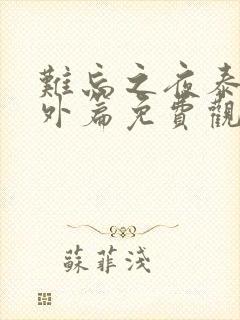 難忘之夜泰
外篇免費觀
蘇菲淺